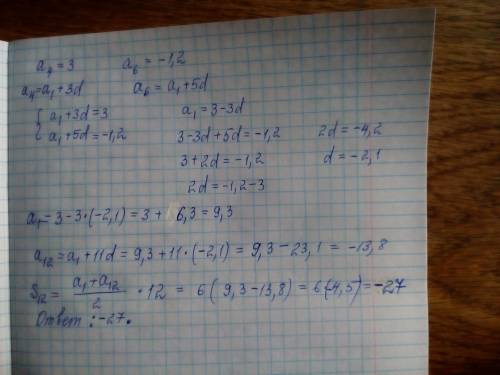 a₄ = 3   a₆ = -1,2
a₄ = a₁ + 3d   a₆ = a₁ + 5d
{ a₁ + 3d = 3   a₁ = 3 - 3d
a₁ + 5d = -1,2   3 - 3d + 5d = -1,2   2d = -4,2
3 + 2d = -1,2   d = -2,1
2d = -1,2 - 3
a₁ - 3 - 3·(-2,1) = 3 + 6,3 = 9,3
a₁₂ = a₁ + 11d = 9,3 + 11·(-2,1) = 9,3 - 23,1 = -13,8
S₁₂ = (a₁ + a₁₂)/2 · 12 = 6(9,3 - 13,8) = 6(-4,5) = -27
Ответ: -27.